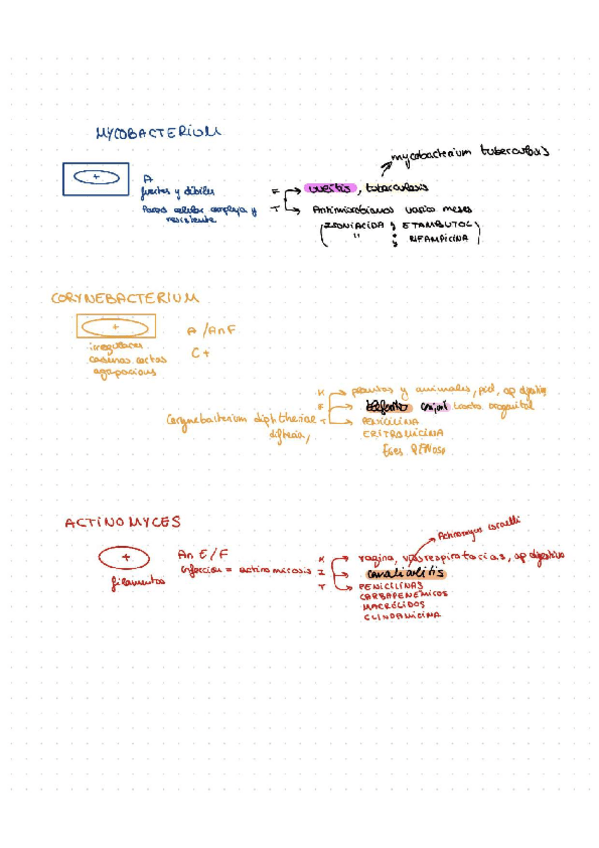 MYCOBACTERIUM
mycobacterium tuberculosis
+
A
fuertes y débiles
Pared celular compleja y
resistente
E → uveitis, tuberculosis
T → Antimicrobianos varios meses
(ISONIACIDA y ETAMBUTOL
" y RIFAMPICINA)
CORYNEBACTERIUM
+
A / AnF
C+
irregulares
cadenas cortas
agrupaciones
K → plantas y animales, piel, ap digestivo
E → blefaritis conjunt tracto urogenital
Corynebacterium diphtheriae
difteria,
T → PENICILINA
ERITROMICINA
ACTINOMYCES
+
filamentos
An E/F
infeccion = actinomicosis
Actinomyces israelii
K → vagina, vias respiratorias, ap digestivo
I → canaliculitis
T → PENICILINAS
CARBAPENEMICOS
MACRÓLIDOS
CLINDAMICINA